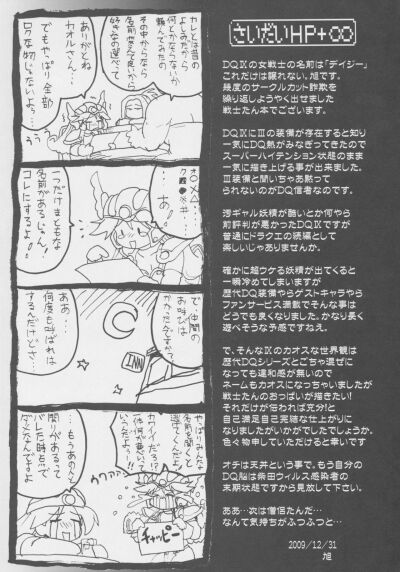 さいだいHP+∞
DQⅨの女戦士の名前は「デイジー」
これだけは譲れない、旭です。
幾度のサークルカット詐欺を
繰り返しようやく出せました
戦士たん本でございます。
DQⅨにⅢの装備が存在すると知り
一気にDQ熱がみなぎってきたので
スーパーハイテンション状態のまま
一気に描き上げる事が出来ました。
Ⅲ装備と聞いちゃあ黙って
られないのがDQ信者なのです。
汚ギャル妖精が酷いとか何やら
前評判が悪かったDQⅨですが
普通にドラクエの続編として
楽しいじゃありませんか。
確かに超ウケる妖精が出てくると
一瞬冷めてしまいますが
歴代DQ装備やらゲストキャラやら
ファンサービス満載でそんな事は
どうでも良くなりました。かなり長く
遊べそうな予感ですねえ。
で、そんなⅨのカオスな世界観は
歴代DQシリーズとごちゃ混ぜに
なっても違和感が無いので
ネームもカオスになっちゃいましたが
戦士たんのおっぱいが描きたい!
それだけが伝われば充分!と
自己満足自己完結な仕上がりに
なりましたがいかがでしたでしょうか。
色々物申していただけると幸いです
オチは天丼という事で、もう自分の
DQ脳は柴田ウィルス感染者の
末期状態ですから見放して下さい。
ああ…次は僧侶たんだ…
なんて気持ちがふつふつと…
2009/12/31
旭
カレとは昔の
よしみだから
何とかならないか
頼んでみたの
その中からなら
名前変えて良いから
好きなの選べって
ありがとね
カオルさん…
でもやっぱり全部
ロクな物じゃないよう…
あ!
つだけまともな
名前があるじゃん!
コレにするよ!!
で仲間の
お呼びは
かかったんですか?
ああ…
何度も呼ばれは
するんだけどさ
やっぱりみんな
名前を聞くと
逃げてくんだよ
カワイイだろ?
一体何が悪いって
いうんだよっ!!
チャッピー
…もうあの
関りがあるって
バレた時点で
ダメなんですよ